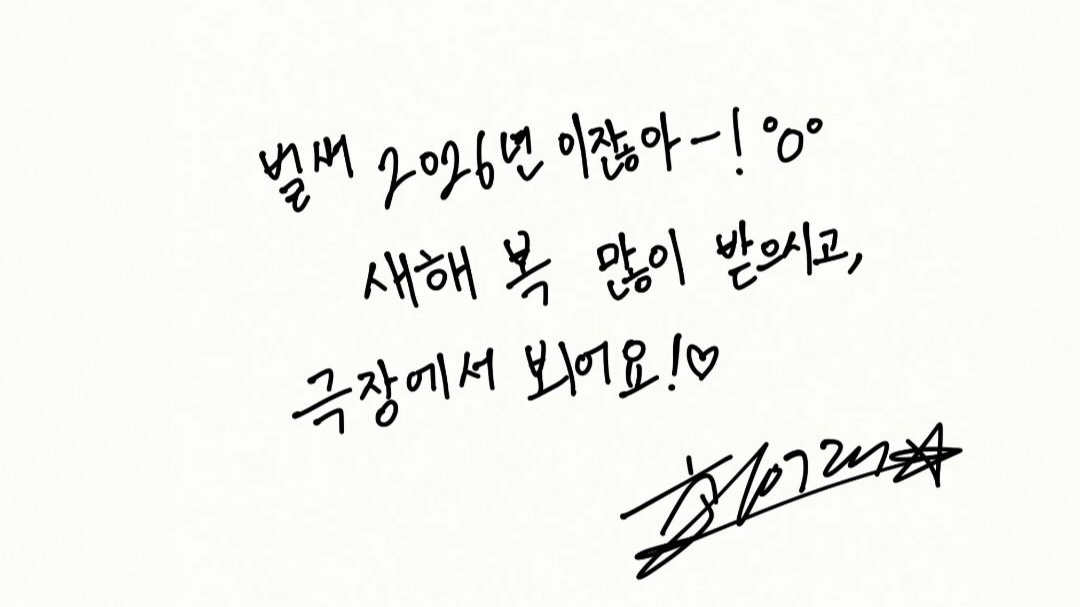 벌써 2026년 이잖아-! °o°
새해 복 많이 받으시고,
극장에서 뵈어요!♡